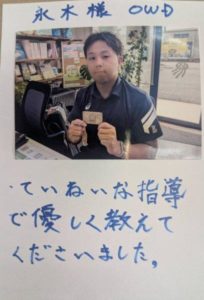 永木様 OWD
・ていねいな指導
で優しく教えて
くださいました。